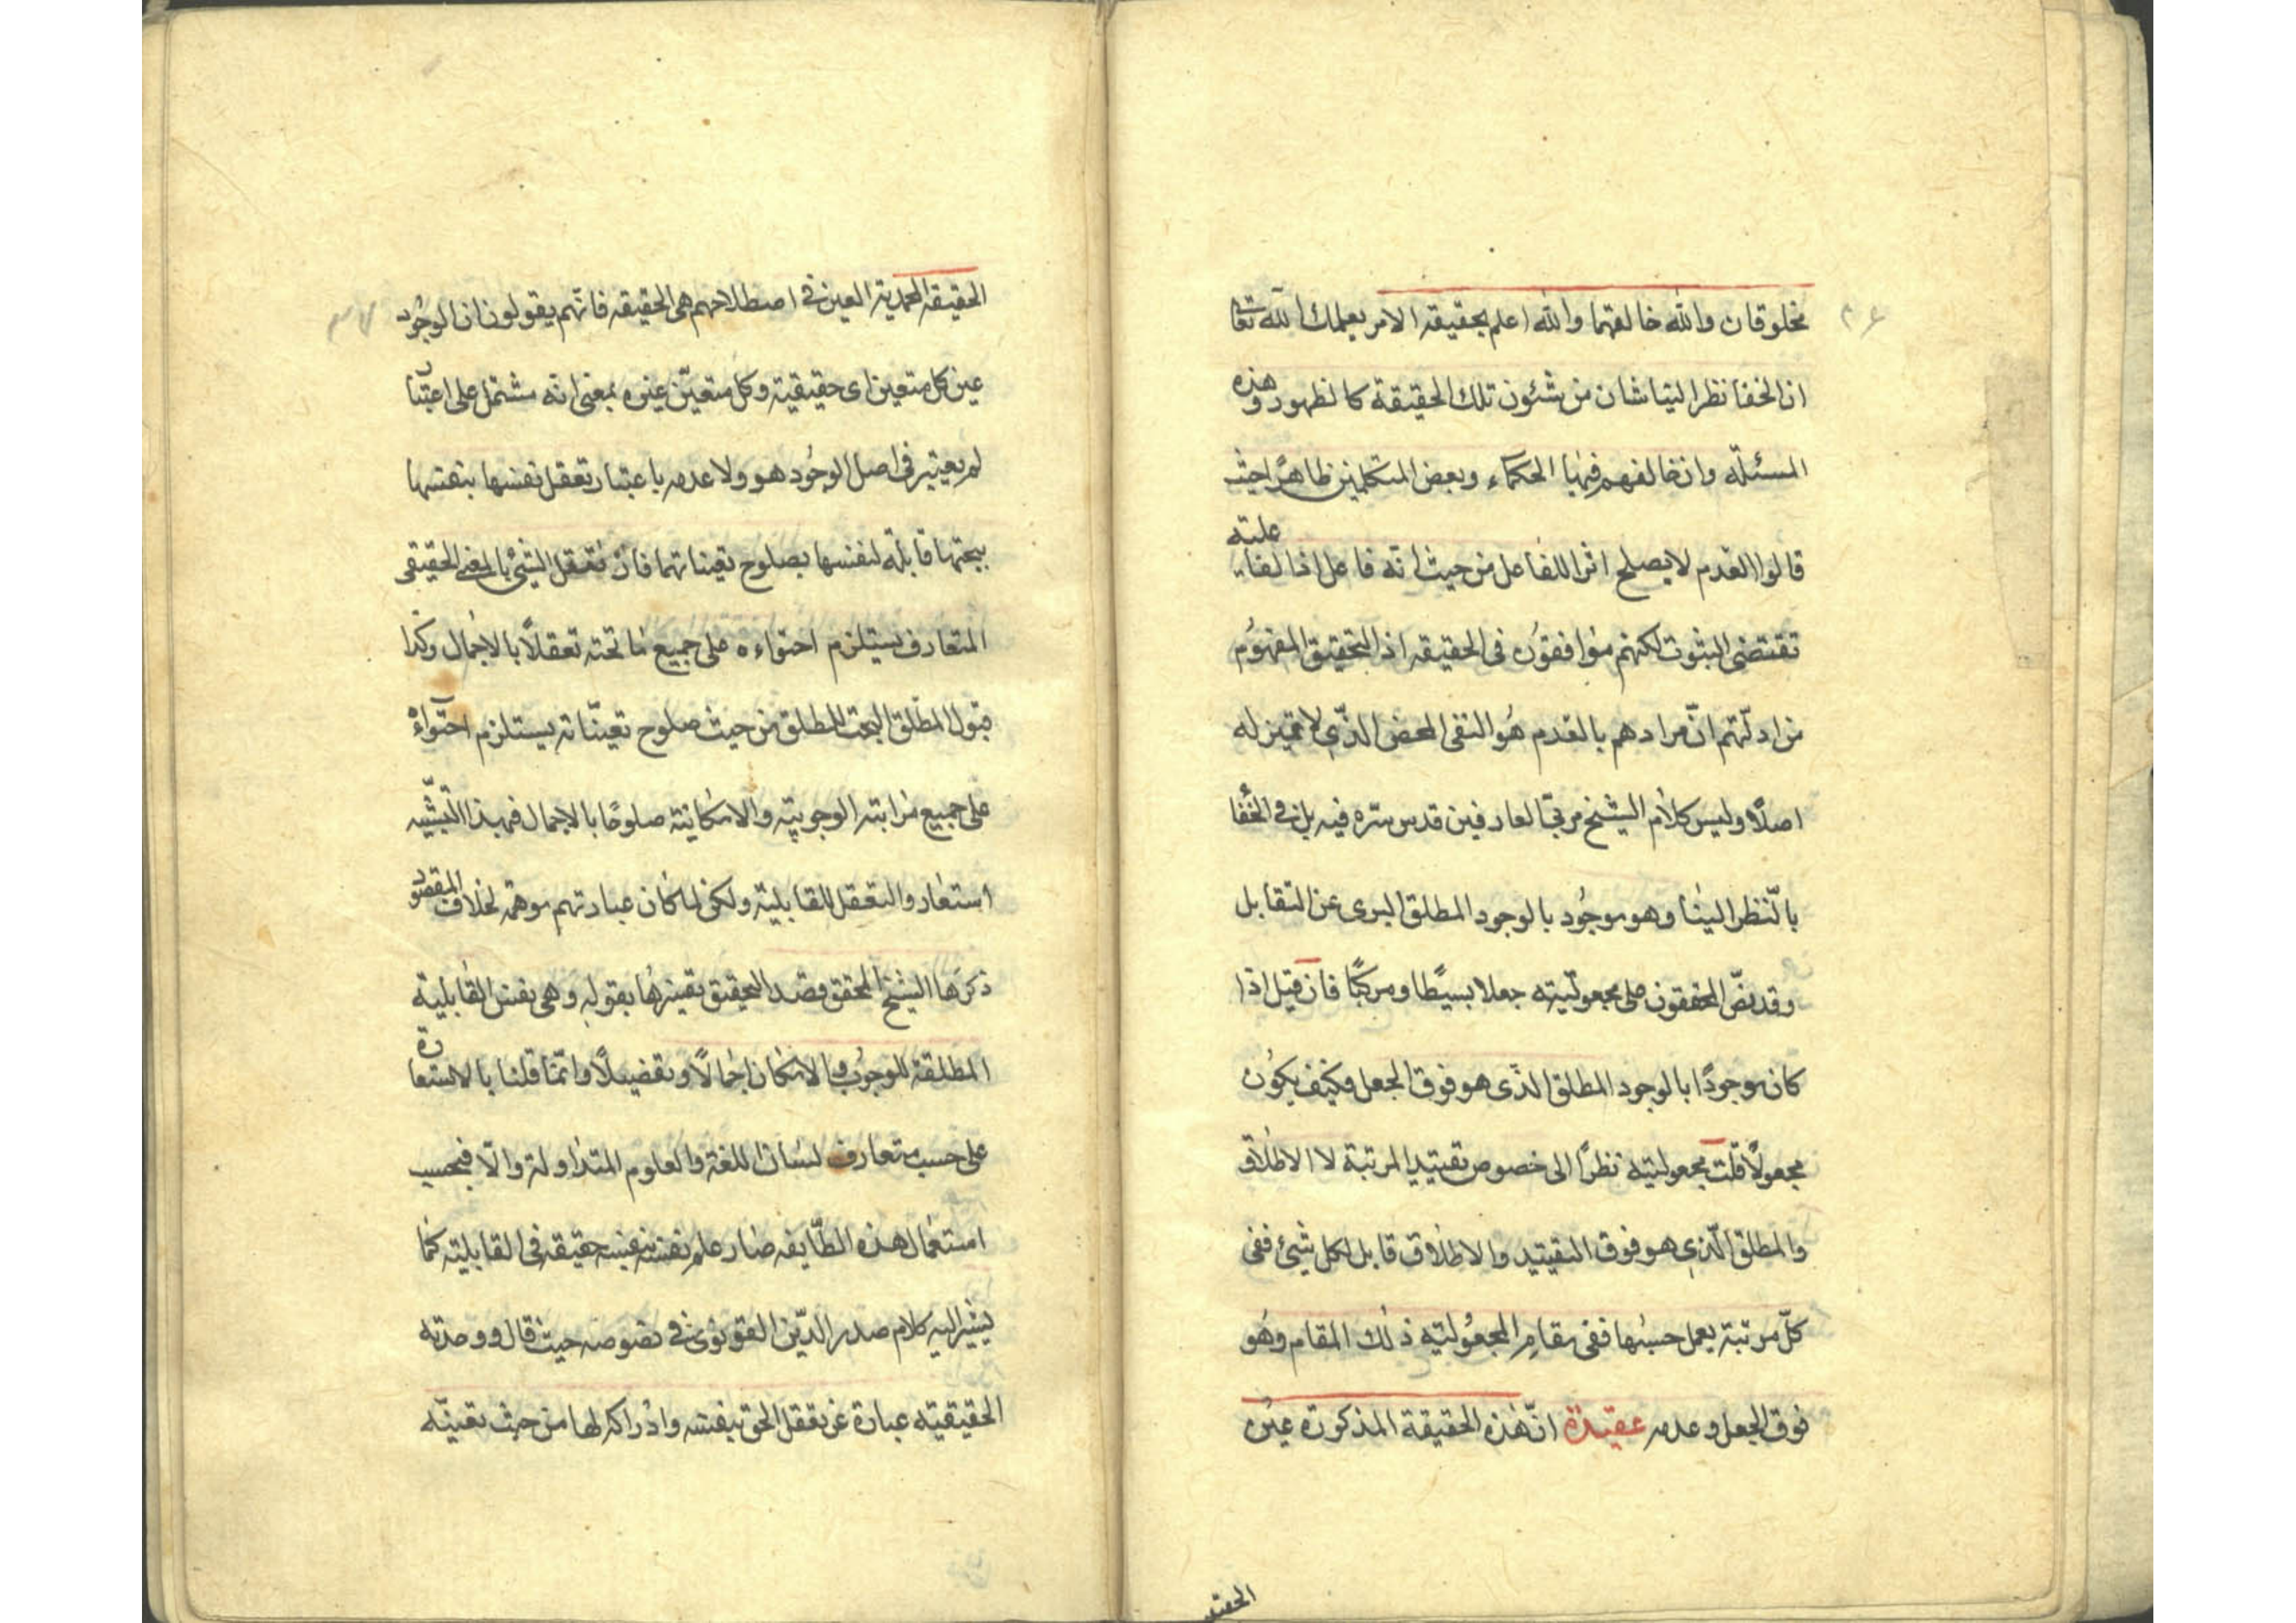 ۳۶
مخلوقان والله خالقهما والله اعلم بحقيقة الامر يعلمك الله تعالى
ان الخفا نظرا الينا شان من شئون تلك الحقيقة كالظهور وهذه
المسئلة وان خالفهم فيها الحكماء وبعض المتكلمين ظاهرا حيث
قالوا العدم لا يصلح اثرا للفاعل من حيث انه فاعل اذ الفاعلية
تقتضى الثبوت لكنهم موافقون فى الحقيقه اذ التحقيق المفهوم
من ادلتهم انّ مرادهم بالعدم هو النفى المحض الذى لا تميز له
اصلا وليس كلام الشيخ مربّى العارفين قدس سره فيه بل فى الخفا
بالنّظر الينا وهو موجود بالوجود المطلق البرى عن التقابل
وقد نصّ المحققون على مجعوليّته جعلا بسيطا ومركبًا فان قيل اذا
كان موجودًا بالوجود المطلق الذّى هو فوق الجعل فكيف يكون
مجعولًا قلت مجعوليته نظرًا الى خصوص تقييد المرتبة لا الاطلاق
والمطلق الّذى هو فوق التقييد والاطلاق قابل لكل شئ ففى
كلّ مرتبة يعمل حسبها ففى مقام المجعولية ذلك المقام وهو
فوق الجعل وعدمه عقيدة انّ هذه الحقيقة المذكورة عين
الحقيقه
۳۷
الحقيقه المحمدية العين فى اصطلاحهم هى الحقيقه فانّهم يقولون ان الوجود
عين كل متعين اى حقيقية وكل متعيّن عينه بمعنى انه مشتمل على اعتبار
لم يعتبر فى اصل الوجود هو ولا عدمه باعتبار تعقل نفسها بنفسها
بيحتها قابلة لنفسها بصلوح تعيناتهما فان تعقل الشئ بالمعنى الحقيقى
المتعارف يستلزم احتواءه على جميع ما تحته تعقلًا بالاجمال وكذا
قبول المطلق البحت للمطلق من حيث صلوح تعيّناته يستلزم احتواءه
على جميع مراتبه الوجوبية والامكانية صلوحًا بالاجمال فبهذا التشبيه
استعاروا التعقل للقابلية ولكن لما كان عبارتهم موهمة لخلاف المقصود
ذكرها الشيخ المحقق وقصد التحقيق تفسيرها بقوله وهى نفس القابلية
المطلقة للوجوب والامكان اجمالًا وتفصيلًا وانّما قلنا بالاستعارة
على حسب متعارف لسان اللغة والعلوم المتداولة والّا فبحسب
استعمال هذه الطّايفه صار علم نفسه بنفسه حقيقة فى القابلية كما
يشير اليه كلام صدر الدّين القونوى فى نصوصه حيث قال ووحدته
الحقيقيته عبارة عن تعقل الحق بنفسه وادراكه لها من حيث تعينه